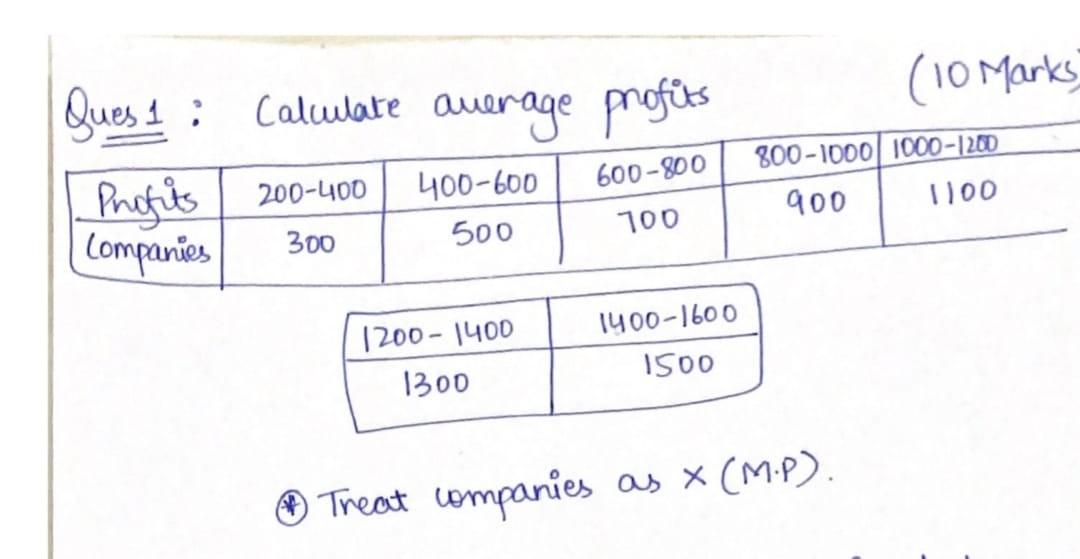 Ques 1 : Calculate average profits (10 Marks)
Profits 200-400 400-600 600-800 800-1000 1000-1200
Companies 300 500 700 900 1100
1200-1400 1400-1600
1300 1500
* Treat companies as x (M.P).